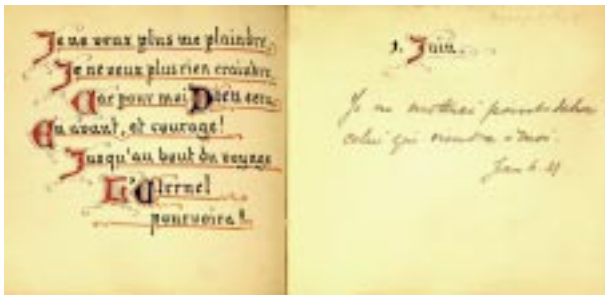 Je ne veux plus me plaindre,
Je ne veux plus rien craindre,
Car pour moi Dieu sera,
En avant, et courage!
Jusqu'au bout du voyage
L'Eternel
pourvoira!
1. Juin.
Je ne mettrai point dehors
celui qui viendra à moi.
Jean 6.